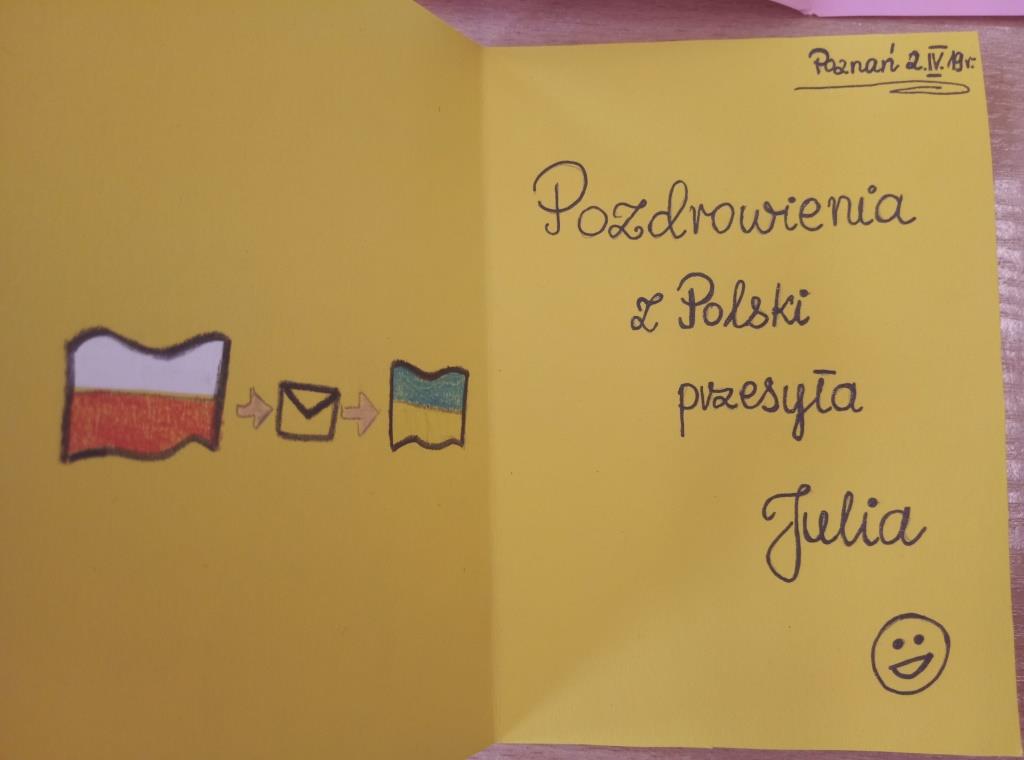 Poznań 2.IV.19r.
Pozdrowienia
z Polski
przesyła
Julia